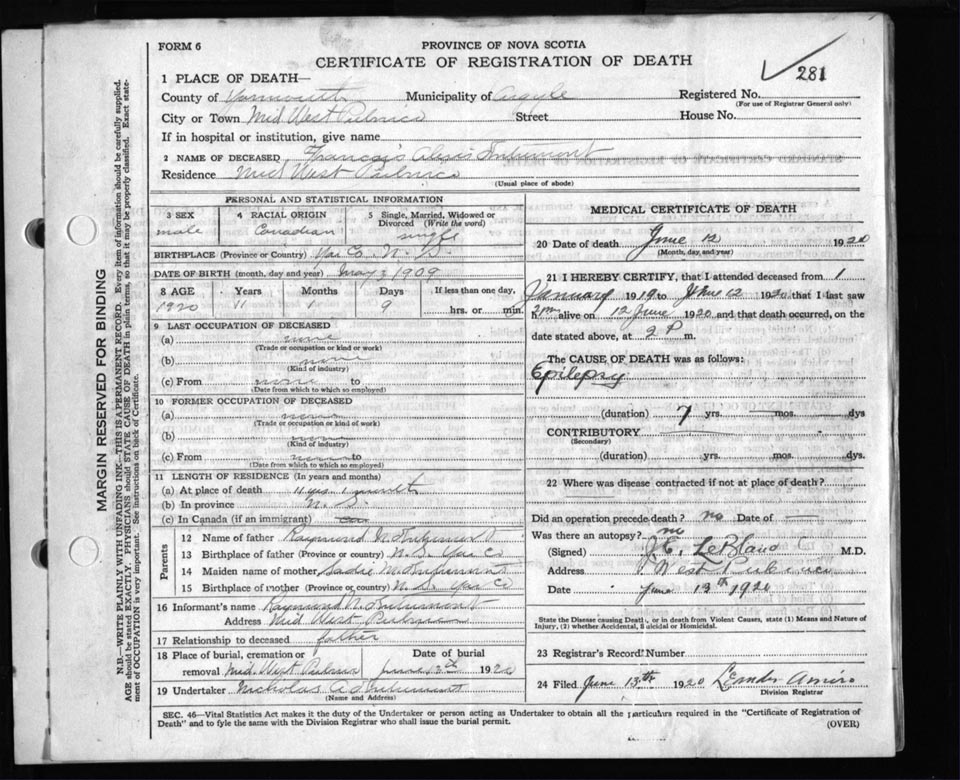 FORM 6
PROVINCE OF NOVA SCOTIA
CERTIFICATE OF REGISTRATION OF DEATH
281
1 PLACE OF DEATH—
County of Yarmouth Municipality of Argyle Registered No.
(For use of Registrar General only)
City or Town Mid West Pubnico Street House No.
If in hospital or institution, give name
2 NAME OF DECEASED Francois Alexis
Residence Mid West Pubnico
(Usual place of abode)
PERSONAL AND STATISTICAL INFORMATION
3 SEX
male
4 RACIAL ORIGIN
Canadian
5 Single, Married, Widowed or
Divorced (Write the word)
single
BIRTHPLACE (Province or Country) Yar Co. N. S.
DATE OF BIRTH (month, day and year) May 3 1909
8 AGE Years Months Days If less than one day,
1920 11 1 9 hrs. or min.
9 LAST OCCUPATION OF DECEASED
(a) none
(Trade or occupation or kind or work)
(b) none
(Kind of industry)
(c) From none to
(Date from which to which so employed)
10 FORMER OCCUPATION OF DECEASED
(a) none
(Trade or occupation or kind of work)
(b) none
(Kind of industry)
(c) From none to
(Date from which to which so employed)
11 LENGTH OF RESIDENCE (In years and months)
(a) At place of death 11 yrs. 1 month
(b) In province N. S.
(c) In Canada (if an immigrant)
Parents
12 Name of father Raymond N.
13 Birthplace of father (Province or country) N. S. Yar Co
14 Maiden name of mother Sadie M.
15 Birthplace of mother (Province or country) N. S. Yar Co
16 Informant's name Raymond N.
Address Mid West Pubnico
17 Relationship to deceased father
18 Place of burial, cremation or Date of burial
removal Mid. West Pubnico June 13th 1920
19 Undertaker Nicholas
(Name and Address)
MEDICAL CERTIFICATE OF DEATH
20 Date of death June 12 1920
(Month, day and year)
21 I HEREBY CERTIFY, that I attended deceased from 1
January 1919 to June 12 1920 that I last saw
h alive on 12 June 1920 and that death occurred, on the
date stated above, at 2 P m.
The CAUSE OF DEATH was as follows:
Epilepsy
(duration) 7 yrs. mos. dys
CONTRIBUTORY
(Secondary)
(duration) yrs. mos. dys.
22 Where was disease contracted if not at place of death?
Did an operation precede death? no Date of
Was there an autopsy? no
(Signed) J.E. LeBlanc M.D.
Address West Pubnico
Date June 13th 1920
State the Disease causing Death, or in death from Violent Causes, state (1) Means and Nature of
Injury, (2) whether Accidental, Suicidal or Homicidal.
23 Registrar's Record Number
24 Filed June 13th 1920 Leander Amiro
Division Registrar
SEC. 46—Vital Statistics Act makes it the duty of the Undertaker or person acting as Undertaker to obtain all the particulars required in the "Certificate of Registration of
Death" and to fyle the same with the Division Registrar who shall issue the burial permit.
(OVER)
MARGIN RESERVED FOR BINDING
N.B.—WRITE PLAINLY WITH UNFADING INK—THIS IS A PERMANENT RECORD. Every item of information should be carefully supplied.
AGE should be stated EXACTLY. PHYSICIANS should STATE CAUSE OF DEATH in plain terms, so that it may be properly classified. Exact state-
ment of OCCUPATION is very important. See instructions on back of Certificate.